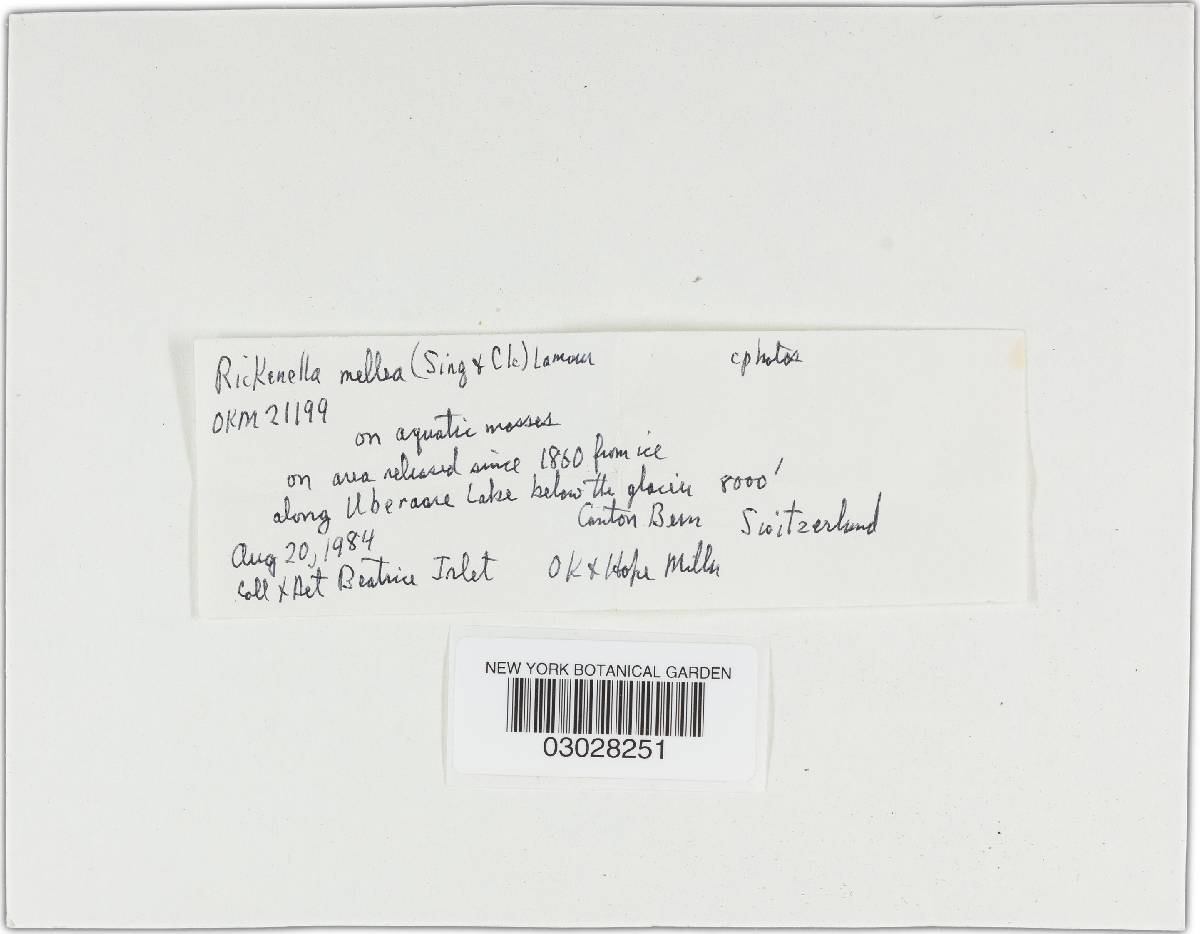 Rickenella mellea (Sing & Clc) Lamour c photos
OKM 21199
on aquatic mosses
on area released since 1860 from ice
along Uberaare Lake below the glacier 8000'
Canton Bern Switzerland
Aug 20, 1984
Coll & Det Beatrice Irlet OK & Hope Miller
NEW YORK BOTANICAL GARDEN
03028251